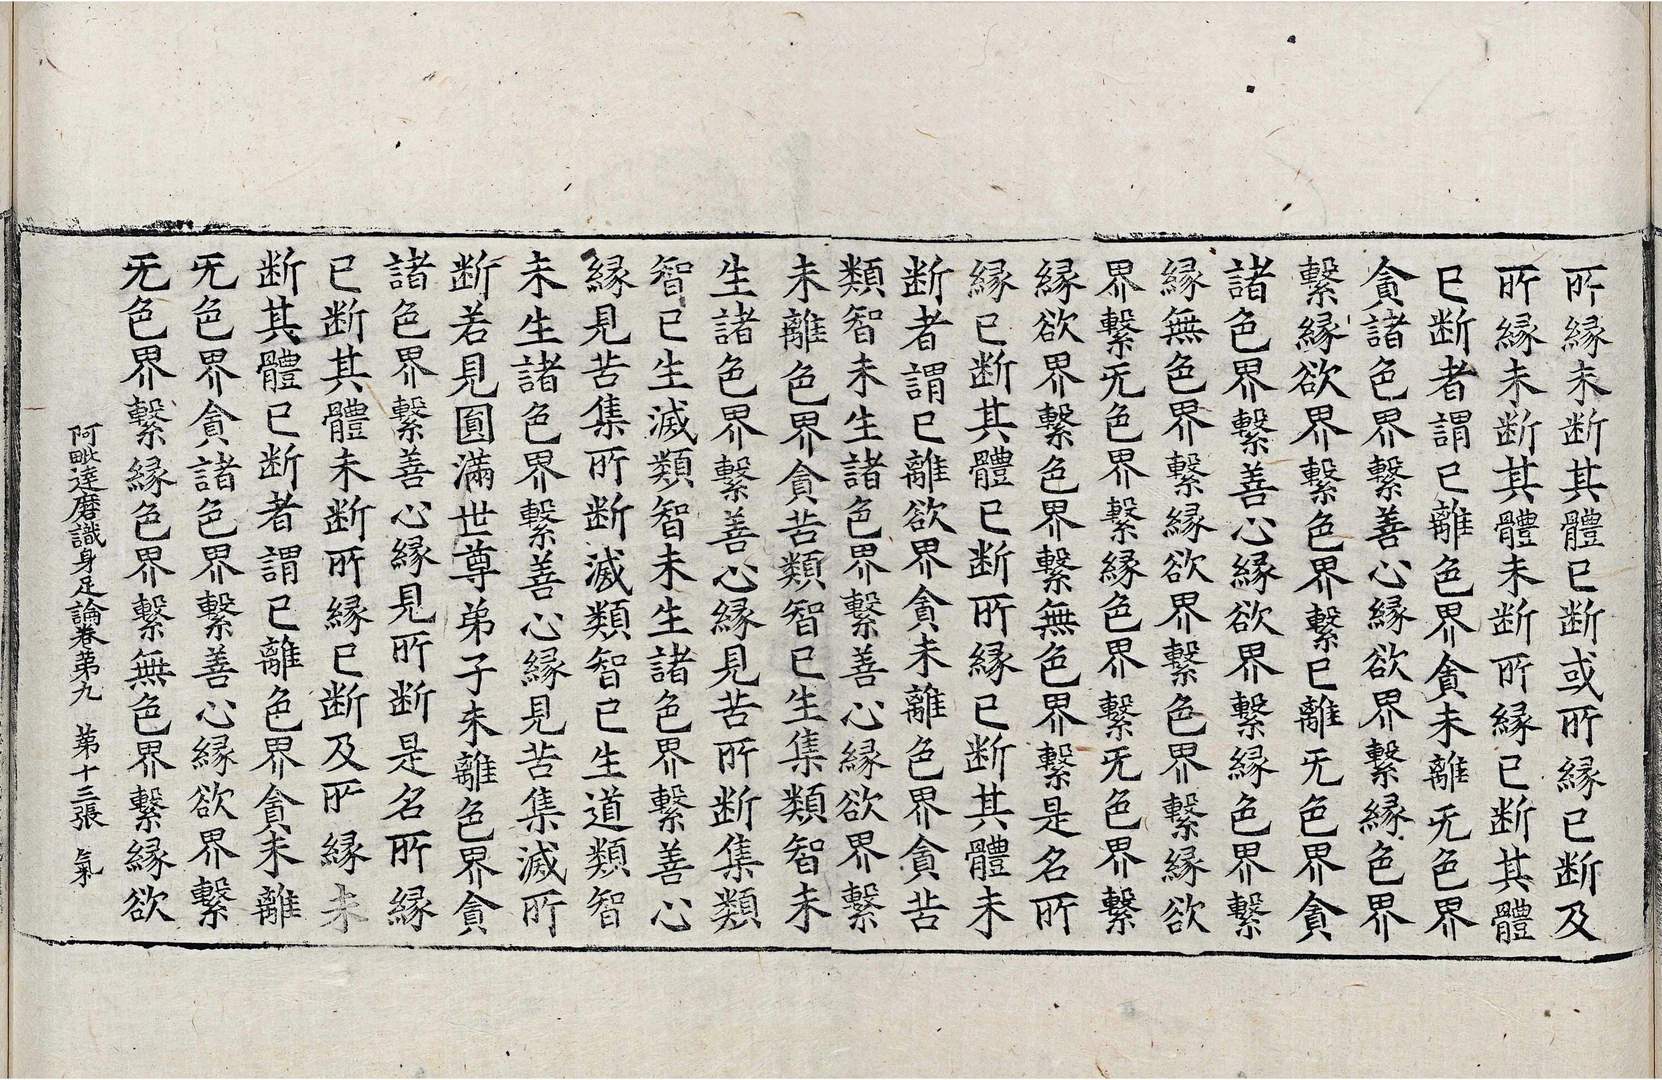 所緣未断其體已断或所緣已断及
所緣未断其體未断所緣已断其體
已断者謂已離色界貪未離无色界
貪諸色界繫善心緣欲界繫緣色界
繫緣欲界繫色界繫已離无色界貪
諸色界繫善心緣欲界繫緣色界繫
緣無色界繫緣欲界繫色界繫緣欲
界繫无色界繫緣色界繫无色界繫
緣欲界繫色界繫無色界繫是名所
緣已断其體已断所緣已断其體未
断者謂已離欲界貪未離色界貪苦
類智未生諸色界繫善心緣欲界繫
未離色界貪苦類智已生集類智未
生諸色界繫善心緣見苦所断集類
智已生滅類智未生諸色界繫善心
緣見苦集所断滅類智已生道類智
未生諸色界繫善心緣見苦集滅所
断若見圓滿世尊弟子未離色界貪
諸色界繫善心緣見所断是名所緣
已断其體未断所緣已断及所緣未
断其體已断者謂已離色界貪未離
无色界貪諸色界繫善心緣欲界繫
无色界繫緣色界繫無色界繫緣欲
阿毗達磨識身足論卷第九 第十三張 氣